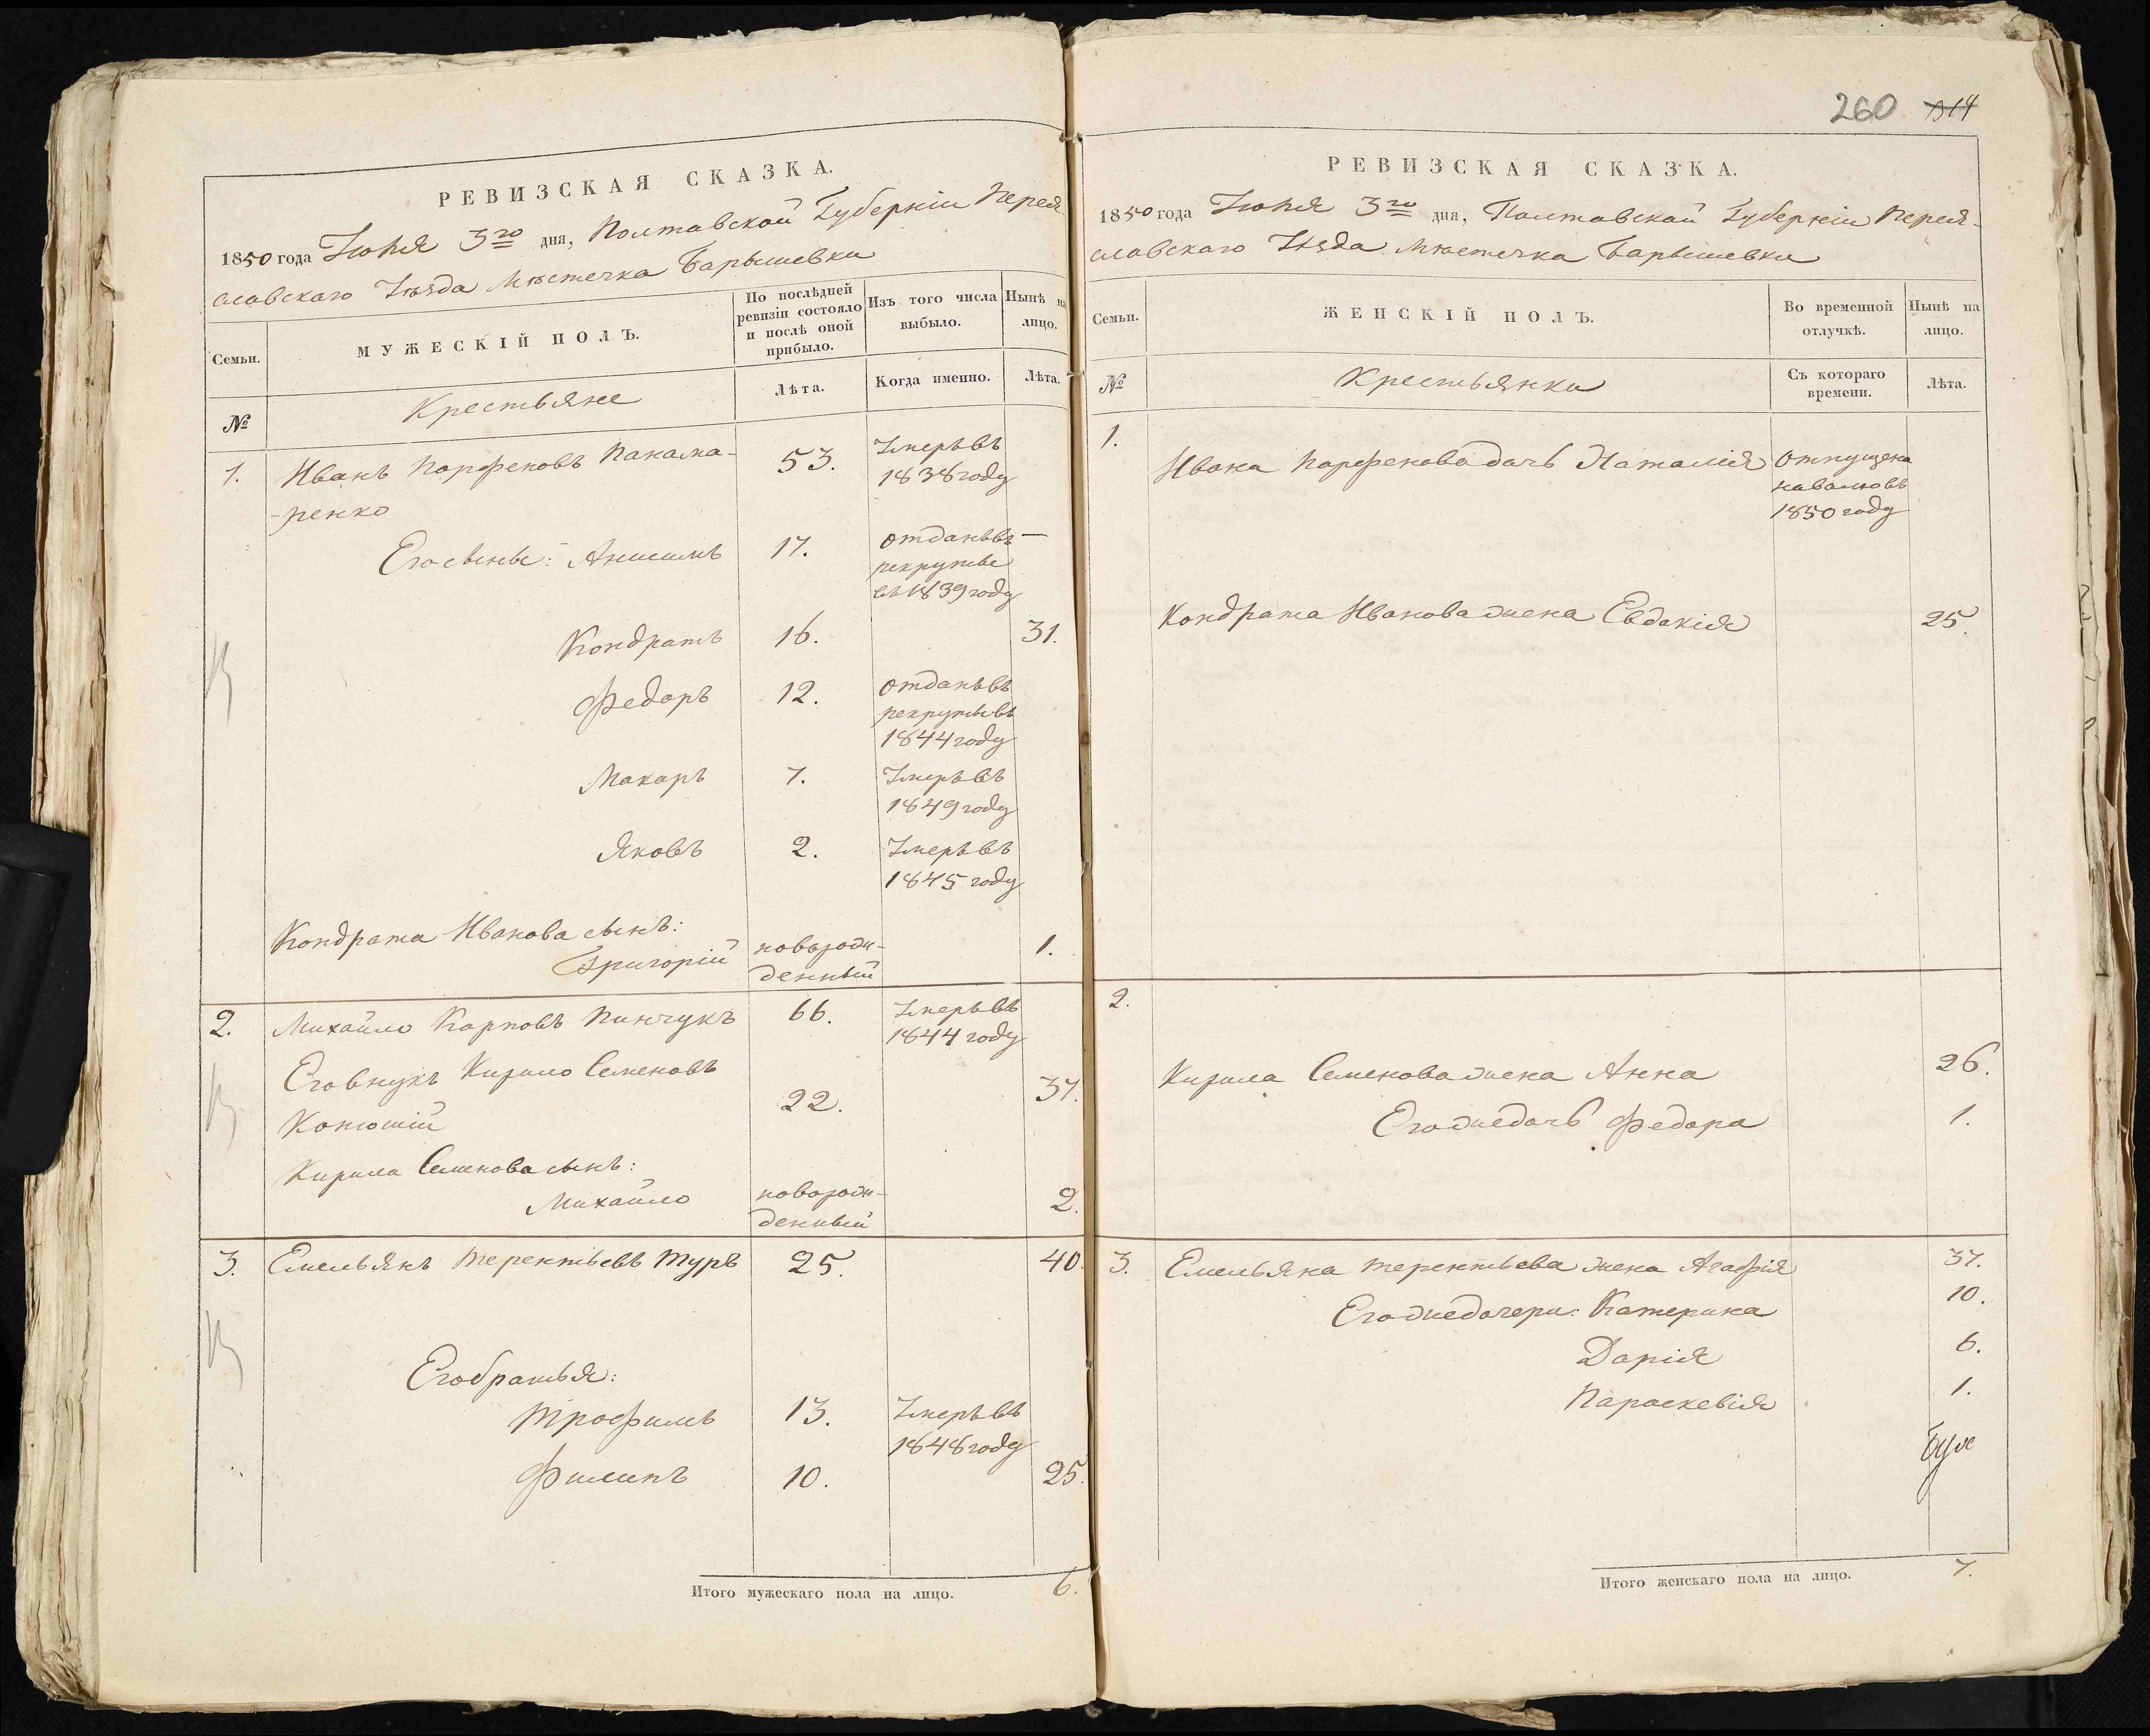 РЕВИЗСКАЯ СКАЗКА.
1850 года Іюня 3го дня, Полтавской Губерніи Перея-
славскаго Уѣзда Мѣстечка Барышевки
Семьи.
МУЖЕСКІЙ ПОЛЪ.
По послѣдней ревизіи состояло и послѣ оной прибыло.
Изъ того числа выбыло.
Нынѣ на лицо.
№
Крестьяне
Лѣта.
Когда именно.
Лѣта.
1. Иванъ Парфеновъ Панама- 53. Умеръ въ
-ренко 1838 году
Его сыновья: Анисимъ 17. отданъ въ
рекруты
въ 1839 году
Кондратъ 16. 31.
Федоръ 12. отданъ въ
рекруты въ
1844 году
Макаръ 7. Умеръ въ
1849 году
Яковъ 2. Умеръ въ
1845 году
Кондрата Иванова сынъ:
Григорій новорож- 1.
денный
2. Михайло Карповъ Пинчукъ 66. Умеръ въ
1844 году
Его внукъ Кирило Семеновъ
Конюшій 22. 37.
Кирила Семенова сынъ:
Михайло новорож- 2.
денный
3. Емельянъ Терентьевъ Туръ 25. 40.
Его братья:
Трофимъ 13. Умеръ въ
1848 году
Филипъ 10. 25.
Итого мужескаго пола на лицо. 6.
260 314
РЕВИЗСКАЯ СКАЗКА.
1850 года Іюня 3го дня, Полтавской Губерніи Перея-
славскаго Уѣзда Мѣстечка Барышевки
Семьи.
ЖЕНСКІЙ ПОЛЪ.
Во временной отлучкѣ.
Нынѣ на лицо.
№
Крестьянки
Съ котораго времени.
Лѣта.
1.
Ивана Парфенова дочь Наталія Отпущена
на волю въ
1850 году
Кондрата Иванова жена Евдокія 25.
2.
Кирила Семенова жена Анна 26.
Его же дочь Федора 1.
3. Емельяна Терентьева жена Агафія 37.
Его же дочери: Катерина 10.
Дарія 6.
Параскевія 1.
Итого женскаго пола на лицо. 7.